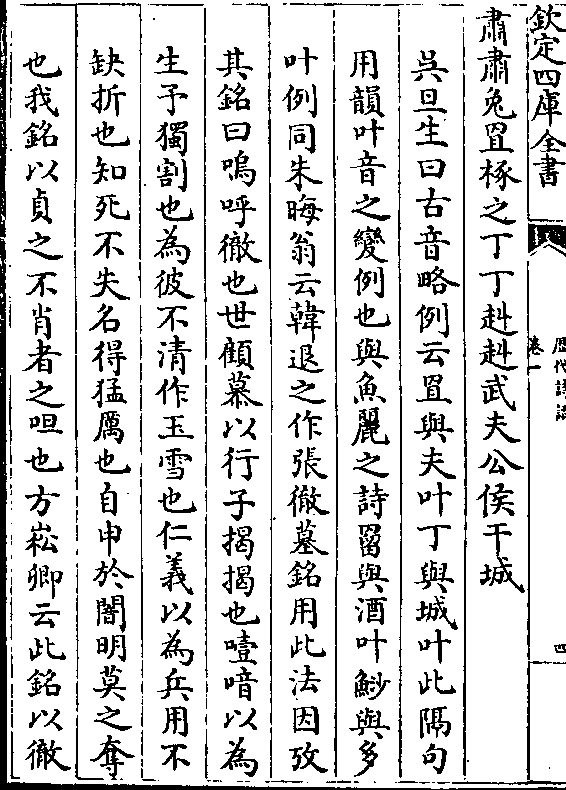 欽定四庫全書
歷代詩話
卷一
四
肅肅兔罝椓之丁丁赳赳武夫公侯干城
吳旦生曰古音略例云罝與夫叶丁與城叶此隔句
用韻叶音之變例也與魚麗之詩罶與酒叶鯋與多
叶例同朱晦翁云韓退之作張徹墓銘用此法因攷
其銘曰嗚呼徹也世顧慕以行子揭揭也噎喑以為
生子獨割也為彼不清作玉雪也仁義以為兵用不
缺折也知死不失名得猛厲也自申於闇明莫之奪
也我銘以貞之不肖者之呾也方崧卿云此銘以徹